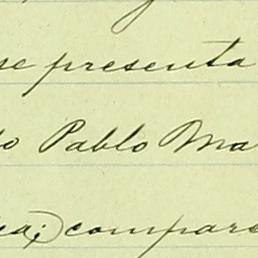 se presenta
Pablo Ma
compare